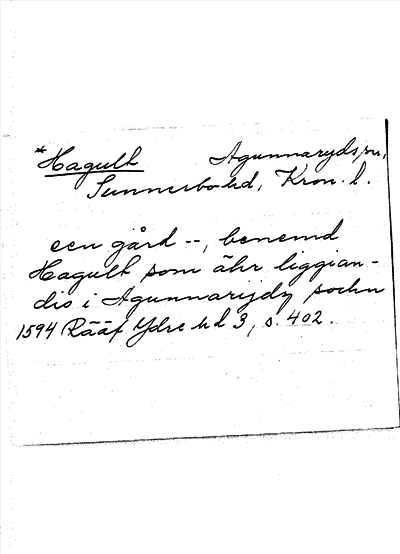 *Hagult Agunnaryds sn,
Sunnerbo hd, Kron. l.
een gård --, benemd
Hagult som ähr liggian-
dis i Agunnarijdz sochn
1594 Rääf Ydre hd 3, s. 402.